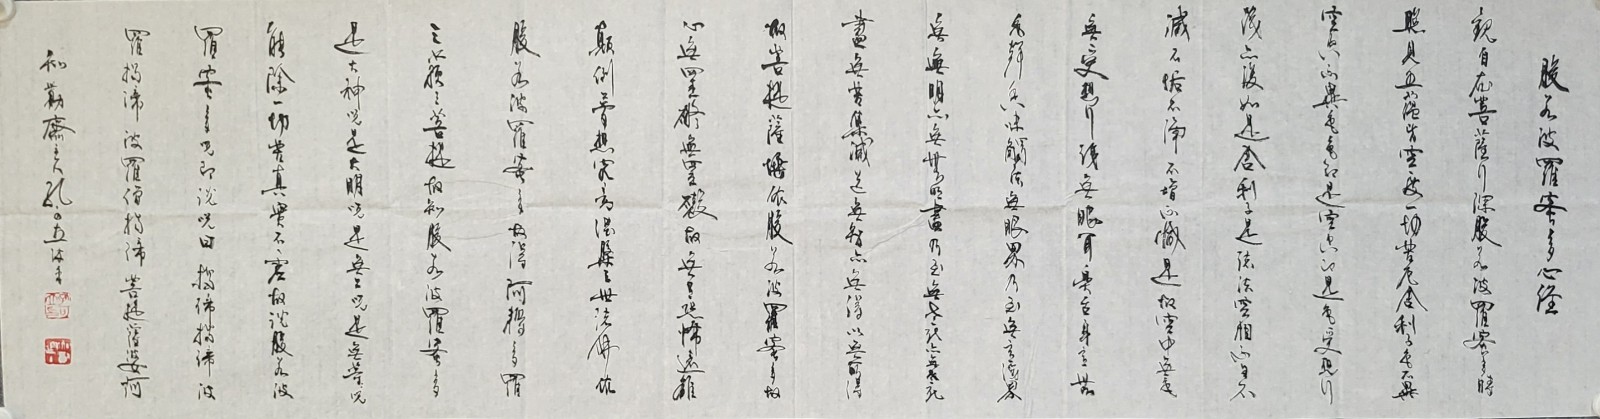 般若波羅蜜多心經
觀自在菩薩行深般若波羅蜜多時
照見五蘊皆空度一切苦厄舍利子色不異
空空不異色色即是空空即是色受想行
識亦復如是舍利子是諸法空相不生不
滅不垢不淨不增不減是故空中無色
無受想行識無眼耳鼻舌身意無
色聲香味觸法無眼界乃至無意識界
無無明亦無無明盡乃至無老死亦無老死
盡無苦集滅道無智亦無得以無所得
故菩提薩埵依般若波羅蜜多故
心無罣礙無罣礙故無有恐怖遠離
顛倒夢想究竟涅槃三世諸佛依
般若波羅蜜多故得阿耨多羅
三藐三菩提故知般若波羅蜜多
是大神咒是大明咒是無上咒是無等咒
能除一切苦真實不虛故說般若波
羅蜜多咒即說咒曰揭諦揭諦波
羅揭諦波羅僧揭諦菩提薩婆訶